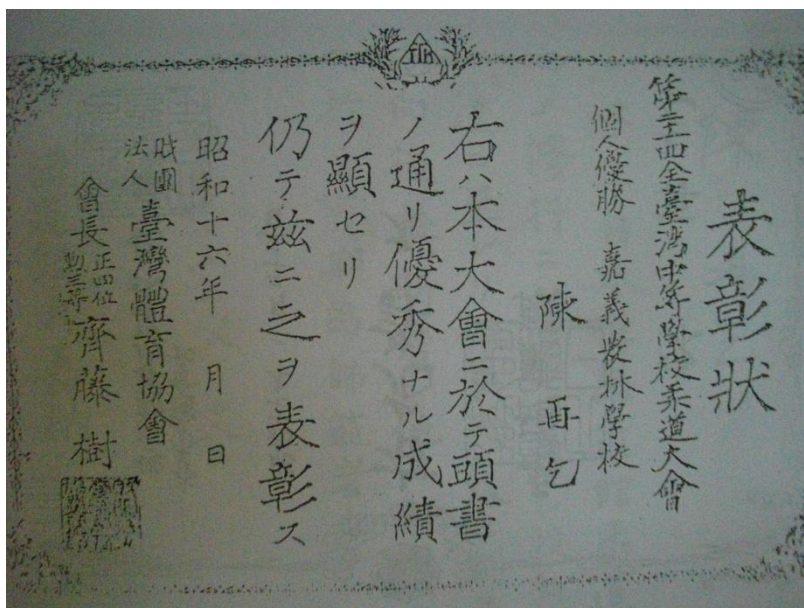 表彰狀
第二十四全臺灣中等學校柔道大會
個人優勝 嘉義農林學校
陳再乞
右ハ本大會ニ於テ頭書
ノ通リ優秀ナル成績
ヲ顯セリ
仍テ茲ニ之ヲ表彰ス
昭和十六年 月 日
財團法人 臺灣體育協會
會長 正四位勳三等 齊藤樹